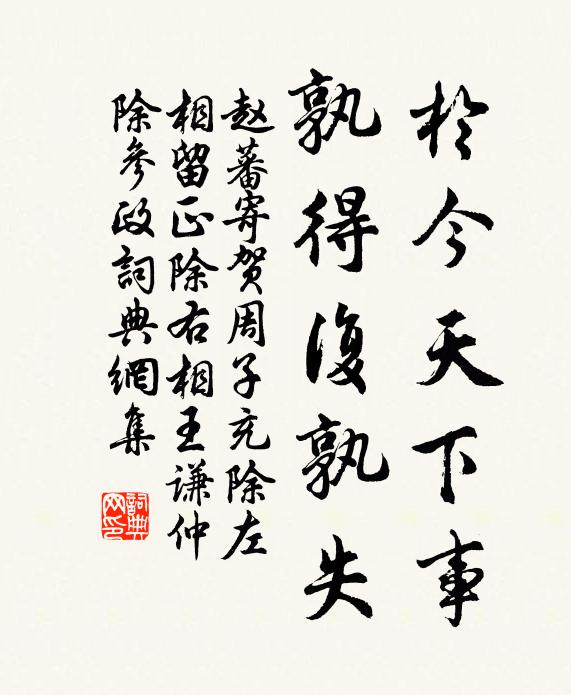 於今天下事
孰得復孰失
赵蕃寄贺周子充除左
相留正除右相王谦仲
除參政詞典網集
詞典
网印